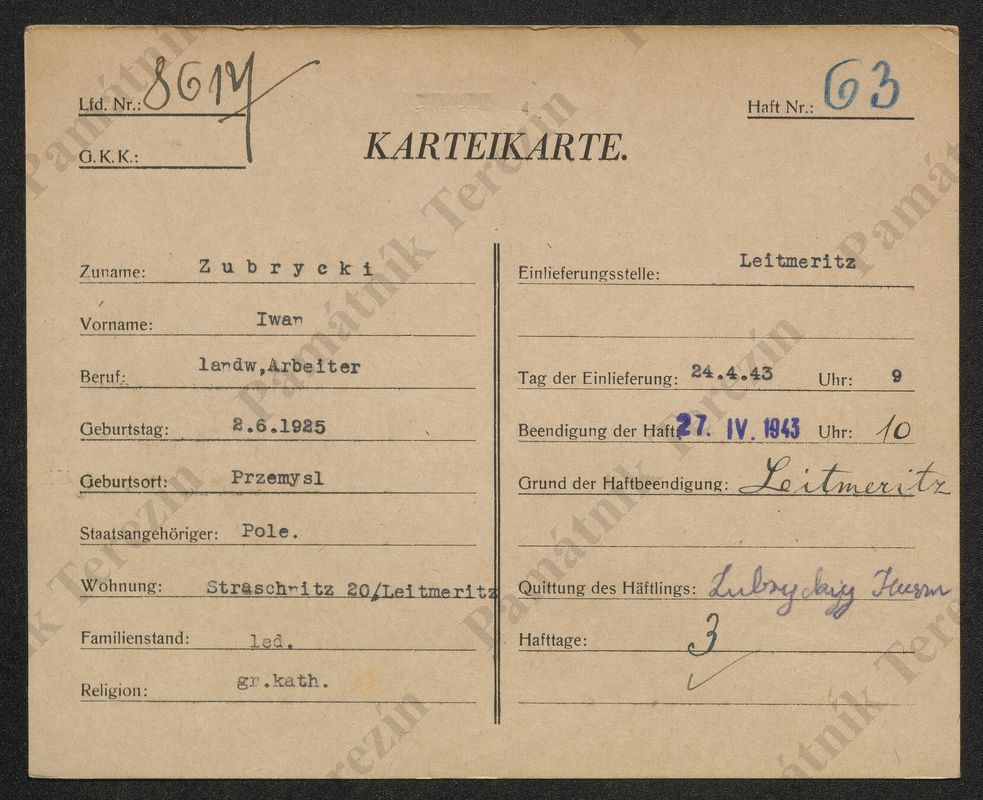 Lfd. Nr.: 8617
Haft Nr.: 63
G.K.K.:
KARTEIKARTE.
Zuname: Zubrycki
Vorname: Iwan
Beruf: landw,Arbeiter
Geburtstag: 2.6.1925
Geburtsort: Przemysl
Staatsangehöriger: Pole.
Wohnung: Straschnitz 20/Leitmeritz
Familienstand: led.
Religion: gr.kath.
Einlieferungsstelle: Leitmeritz
Tag der Einlieferung: 24.4.43 Uhr: 9
Beendigung der Haft: 27. IV. 1943 Uhr: 10
Grund der Haftbeendigung: Leitmeritz
Quittung des Häftlings:
Hafttage: 3
Památník Terezín